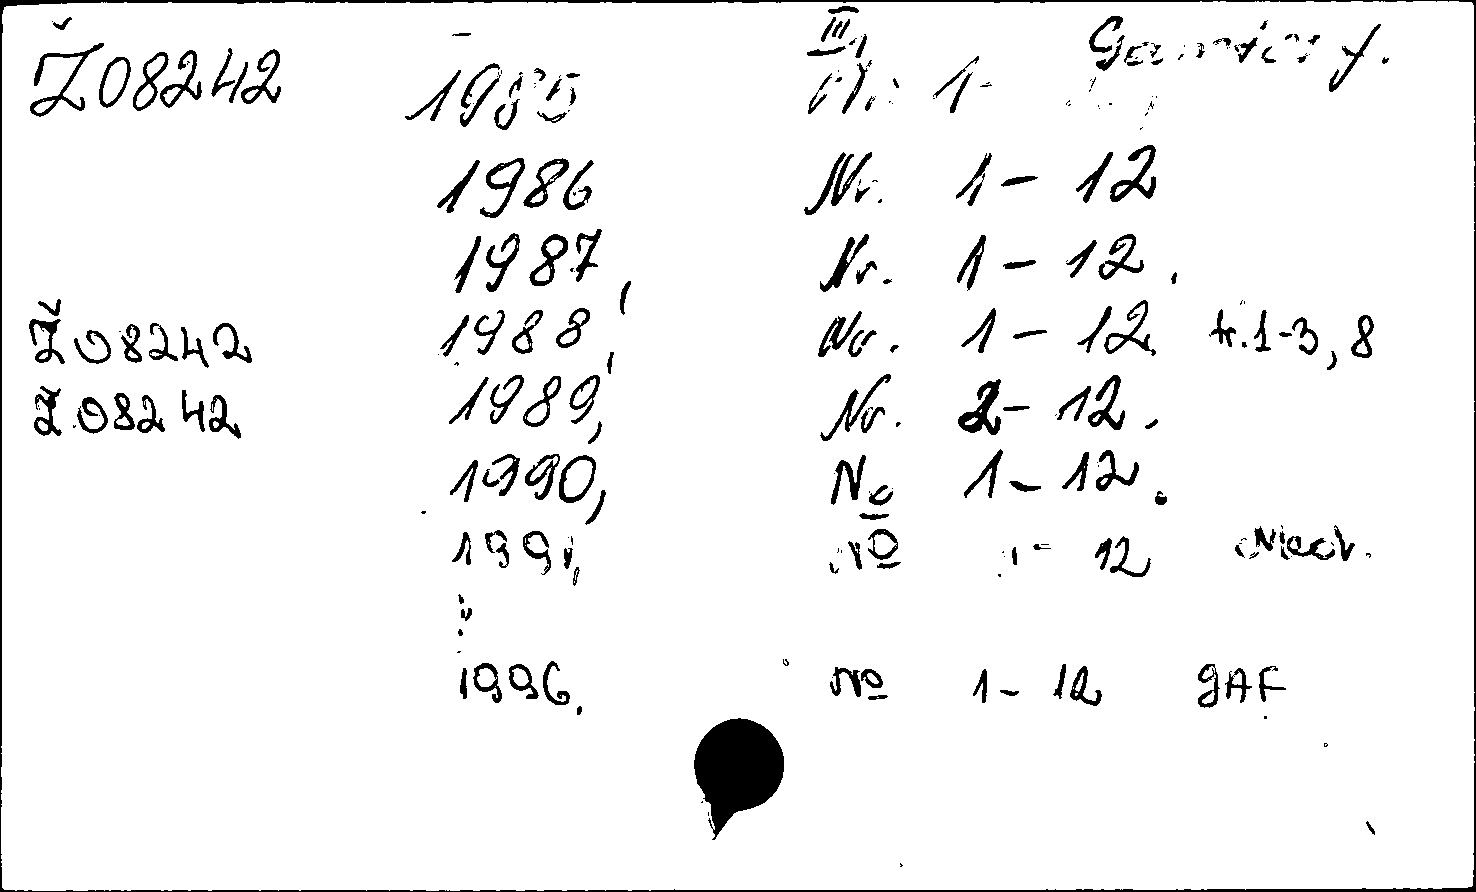 III,
Ž08242 1985 Nr. 1-
1986 Nr. 1 - 12
1987, Nr. 1 - 12.
Ž08242 1988, Nr. 1 - 12. tr. 1-3, 8
Ž08242 1989, Nr. 2 - 12.
1990, No 1 - 12.
1991, № 1 - 12
1996. № 1 - 12 GAF